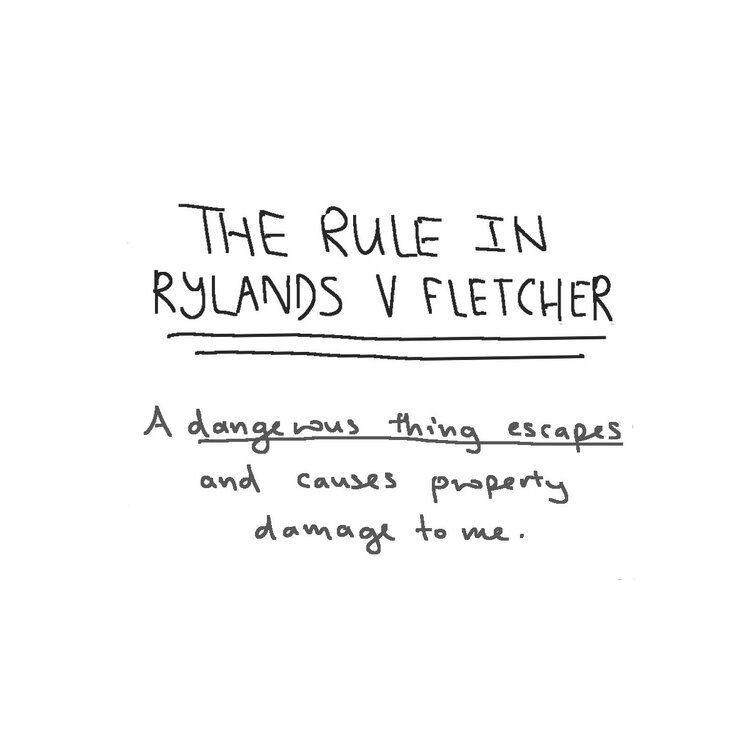 THE RULE IN
RYLANDS V FLETCHER
A dangerous thing escapes
and causes property
damage to me.